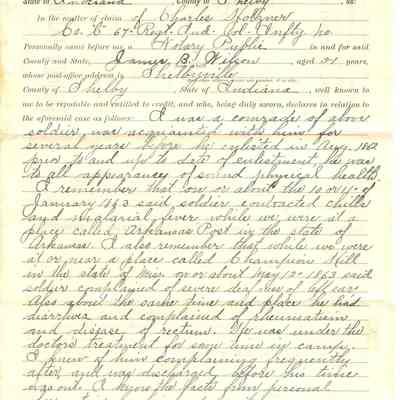 State of Indiana County of Shelby, ss:
In the matter of claim of Charles
Co. C 67 Regt. Ind. Vol. Infty No.
Personally came before me a Notary Public in and for said
County and State, James B. Wilson, aged years,
whose post-office address is Shelbyville
County of Shelby, State of Indiana, well known to
me to be reputable and entitled to credit, and who, being duly sworn, declares in relation to
the aforesaid case as follows: I was a comrade of above
soldier, was acquainted with him for
several years before he enlisted in Aug. 1862
prior to and up to date of enlistment, he was
to all appearances of sound physical health.
I remember that on or about the 10 or 11 of
January 1863 said soldier contracted chills
and malarial fever while we were at a
place called Arkansas Post in the state of
Arkansas. I also remember that while we were
at or near a place called Champion Hill
in the state of Miss on or about May 1863 said
soldier complained of severe deafness of left ear
Also about the same time and place he had
diarrhoea and complained of rheumatism
and disease of rectum. He was under the
doctors treatment for some time in camp.
I knew of him complaining frequently
after, and was discharged before his time
was out. I know the facts from personal